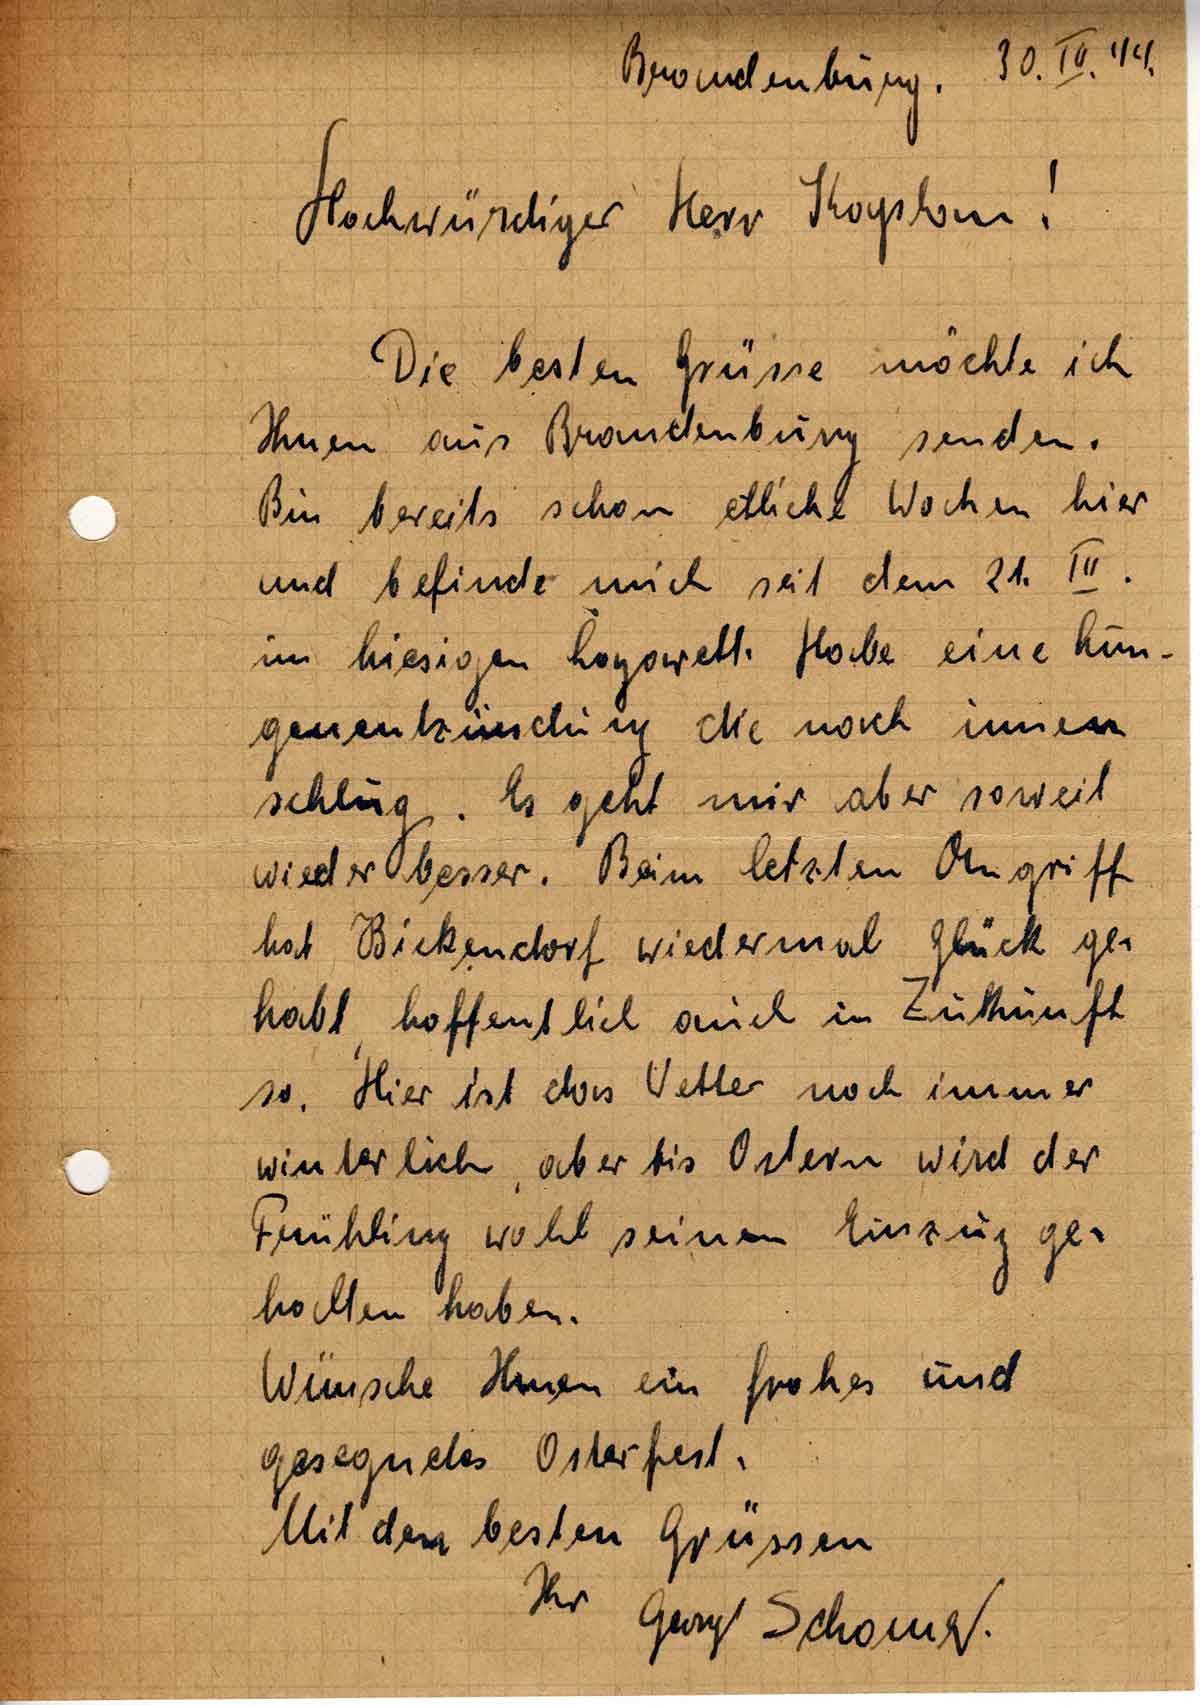 Brandenburg. 30. III. 44.
Hochwürdiger Herr Kaplan!
Die besten Grüsse möchte ich
Ihnen aus Brandenburg senden.
Bin bereits schon etliche Wochen hier
und befinde mich seit dem 21. III.
im hiesigen Lazarett. Habe eine Lun-
genentzündung die nach innen
schlug. Es geht mir aber soweit
wieder besser. Beim letzten Angriff
hat Bickendorf wiedermal Glück ge-
habt, hoffentlich auch in Zukunft
so. Hier ist das Wetter noch immer
winterlich, aber bis Ostern wird der
Frühling wohl seinen Einzug ge-
halten haben.
Wünsche Ihnen ein frohes und
gesegnetes Osterfest.
Mit den besten Grüssen
Ihr Georg